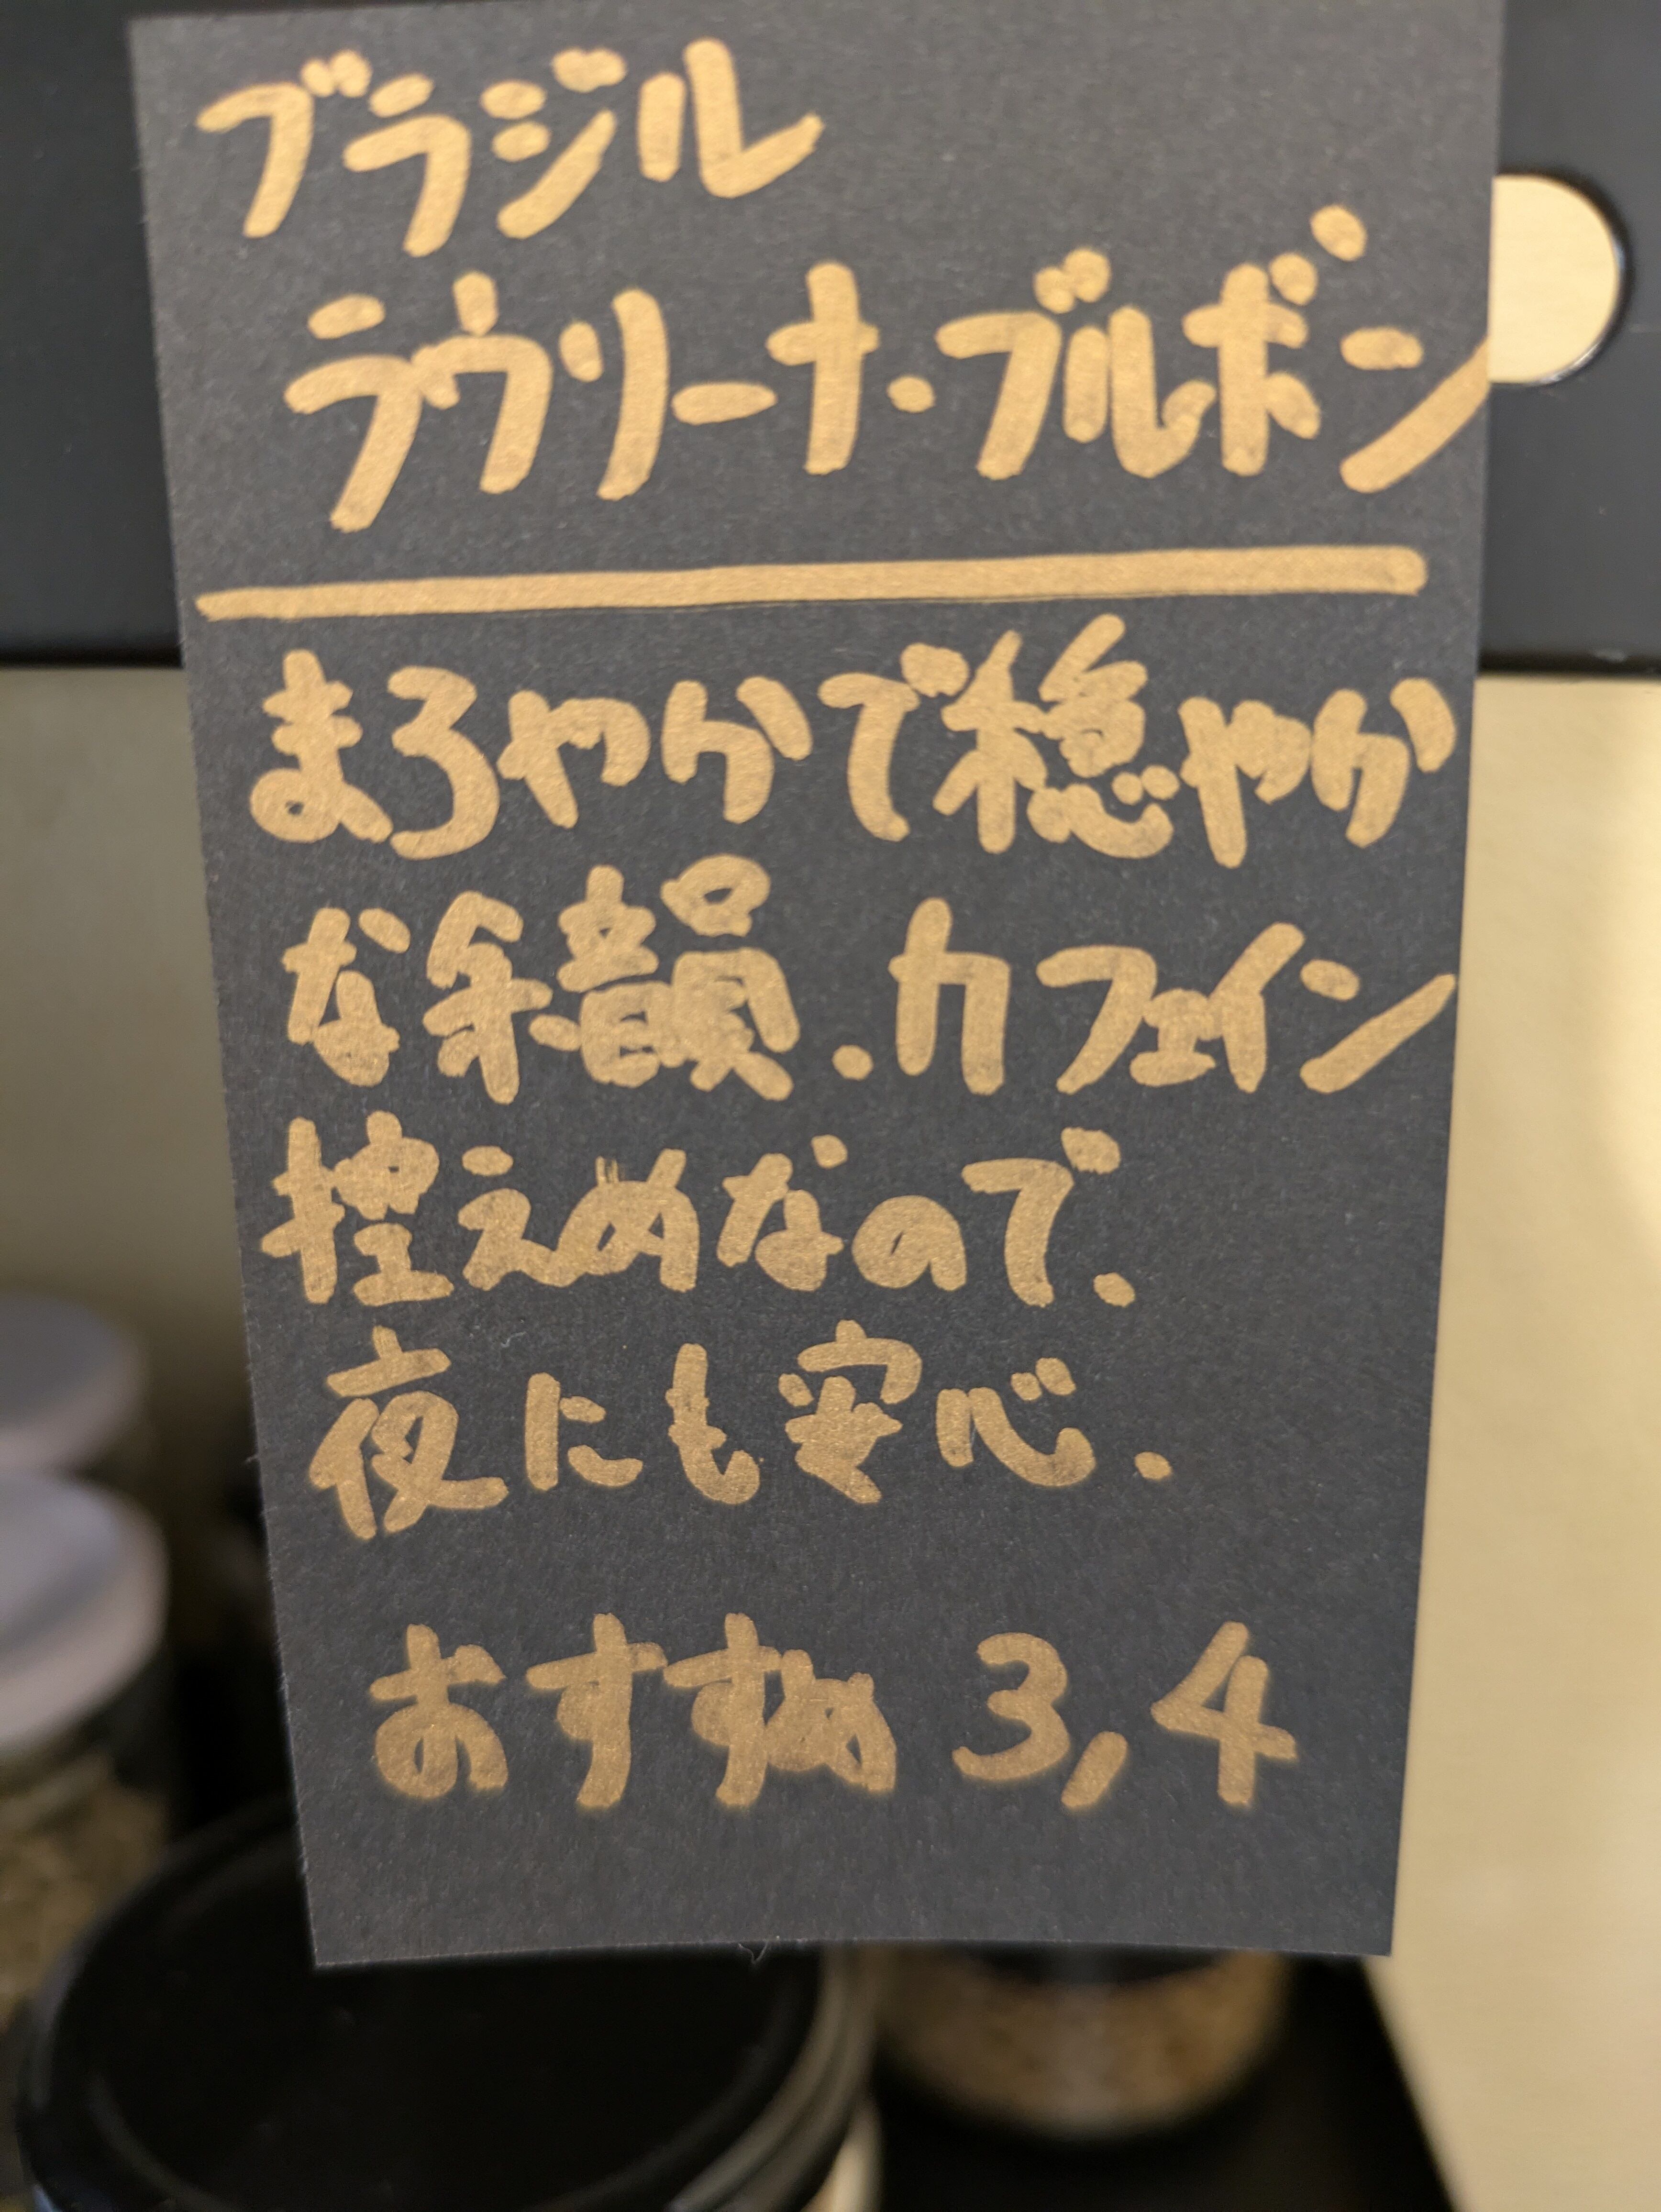 ブラジル
ラウリーナ・ブルボン
まろやかで穏やか
な余韻.カフェイン
控えめなので、
夜にも安心.
おすすめ 3,4